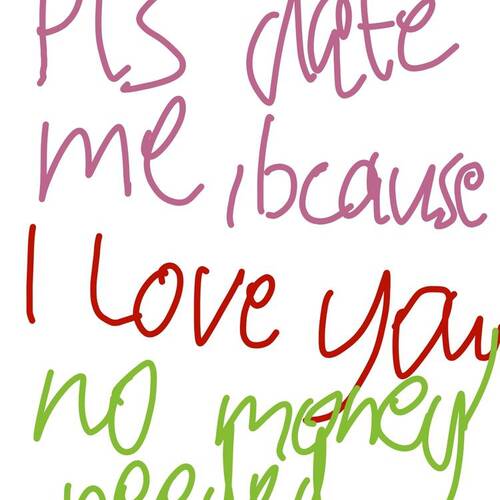 Pls date
me, bcause
I love you
no money
needed